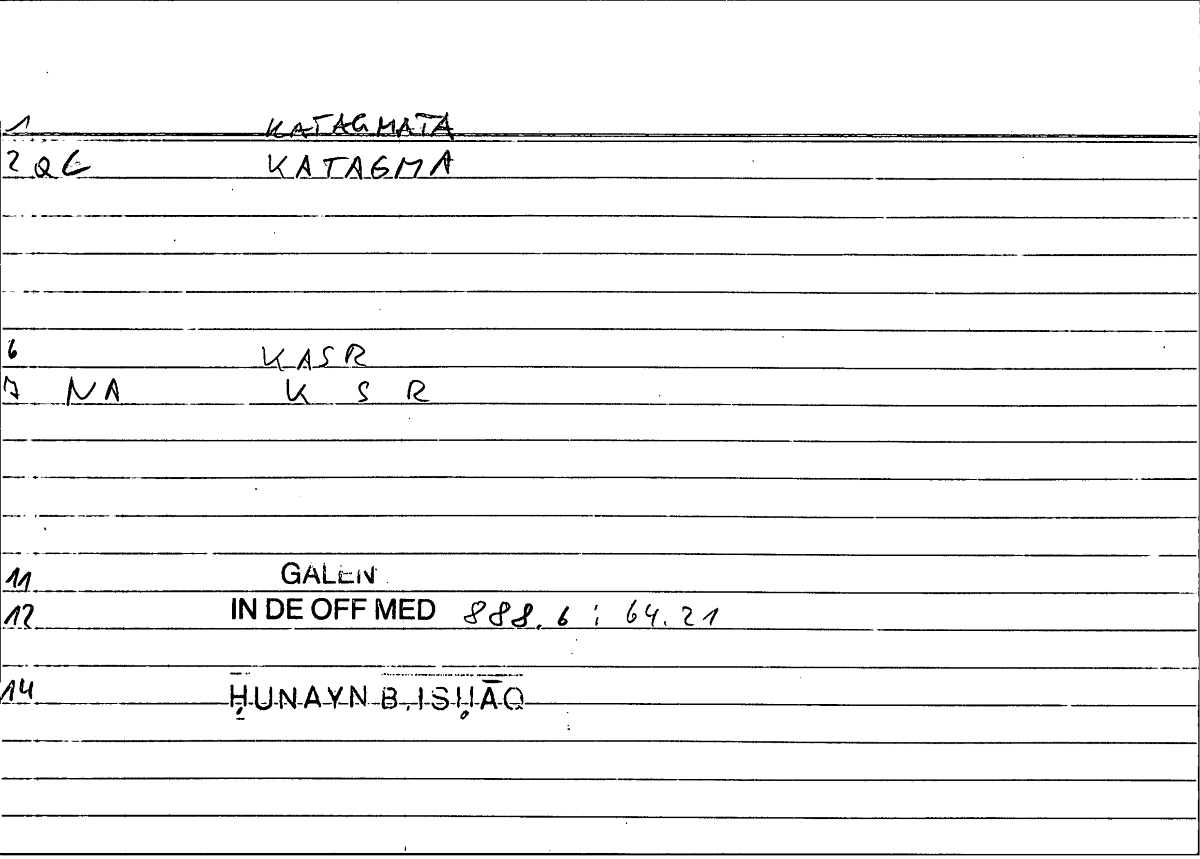 1 KATAGMATA
2 QG KATAGMA
6 KASR
7 NA K S R
11 GALEN
12 IN DE OFF MED 888.6 ; 64.21
14 ḤUNAYN B. ISḤĀQ